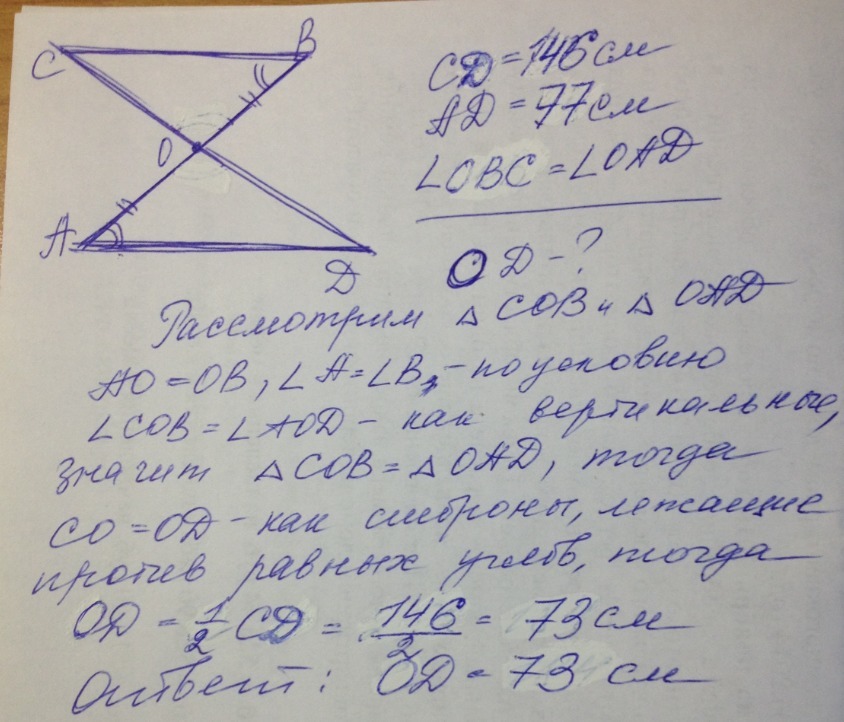 C
B
O
A
D
CD = 146 см
AD = 77 см
∠OBC = ∠OAD
OD - ?
Рассмотрим △ COB и △ OAD
AO = OB, ∠A = ∠B, - по условию
∠COB = ∠AOD - как вертикальные,
значит △ COB = △ OAD, тогда
CO = OD - как стороны, лежащие
против равных углов, тогда
OD = 1/2 CD = 146/2 = 73 см
Ответ: OD = 73 см